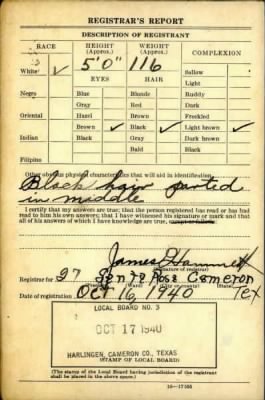 REGISTRAR'S REPORT
DESCRIPTION OF REGISTRANT
RACE HEIGHT (Approx.) WEIGHT (Approx.) COMPLEXION
White ✓ 5'0" 116 Sallow
EYES HAIR Light
Negro Blue Blonde Ruddy
Gray Red Dark
Oriental Hazel Brown Freckled
Brown ✓ Black ✓ Light brown ✓
Indian Black Gray Dark brown
Bald Black
Filipino
Other obvious physical characteristics that will aid in identification
Black hair parted
in middle
I certify that my answers are true; that the person registered has read or has had
read to him his own answers; that I have witnessed his signature or mark and that
all of his answers of which I have knowledge are true, except as follows:
James Hammett
(Signature of registrar)
Registrar for 27 Santa Rosa Cameron
Tex
Date of registration Oct 16, 1940
LOCAL BOARD NO. 3
OCT 17 1940
HARLINGEN, CAMERON CO., TEXAS
(STAMP OF LOCAL BOARD)
(The stamp of the Local Board having jurisdiction of the registrant
shall be placed in the above space.)